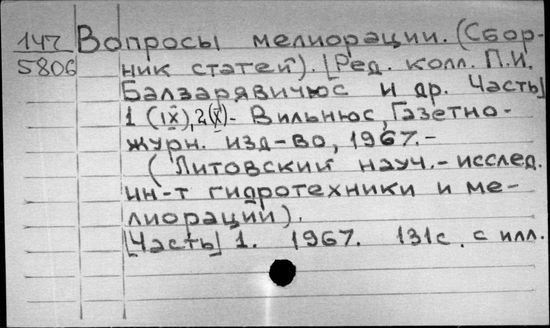 147 Вопросы мелиорации. (Сбор-
5806 ник статей). [Ред. колл. П.И.
Балзарявичюс и др. Часть]
1 (IX), 2(X)- Вильнюс, Газетно-
журн. изд-во, 1967.-
(Литовский науч.-исслед.
ин-т гидротехники и ме-
лиорации).
[Часть] 1. 1967. 131с. с илл.